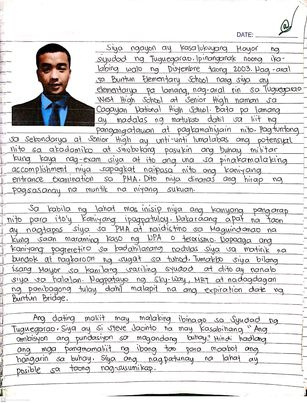 DATE:
Siya ngayon ay kasalukuyang Mayor ng
siyudad ng Tuguegarao. Ipinanganak noong ika-
labing walo ng Disyembre taong 2003. Nag-aral
sa Buntun Elementary School nang siya ay
elementarya pa lamang, nag-aral rin sa Tuguegarao
West High School at Senior High naman sa
Cagayan National High School. Bata pa lamang
ay madalas ng matukso dahil sa liit ng
pangangatawan at pagkamahiyain nito. Pagtuntong
sa Sekondarya at Senior High ay unti-unti lumalabas ang potensyal
nito sa akademiko at sinubukang pasukin ang buhay militar
kung kaya nag-exam siya at ito ang una sa pinakamalaking
accomplishment niya sapagkat naipasa nito ang kaniyang
entrance Examination sa PMA. Dito niya dinanas ang hirap ng
pagsasanay na muntik na niyang sukuan.
Sa kabila ng lahat mas inisip niya ang kaniyang pangarap
nito para ito'y kaniyang ipagpatuloy. Nakaraang apat na taon
ay nagtapos siya sa PMA at naidistino sa Maguindanao na
kung saan maraming kaso ng NPA o terorismo. Dapagpa ang
kaniyang pagmemetro sa badahilanang nadala siya sa matirik na
bundok at nagkaroon ng sugat sa tuhod. Tumakbo siya bilang
isang Mayor sa kanilang sariling siyudad at dito ay nanalo
siya sa halalan. Nagpatayo ng Sky-Way, MRT at nadagdagan
ng panibagong tulay dahil malapit na ang expiration date ng
Buntun Bridge.
Ang dating maliit may malaking ibinago sa Syudad ng
Tuguegarao. Siya ay si Steve Jacinto na may kasabihang "Ang
ambisyon ang pundasyon sa magandang buhay." Hindi hadlang
ang mga pangmamaliit ng ibang tao para maabot ang
hangarin sa buhay. Siya ang nagpatunay na lahat ay
posible sa taong nagsusumikap.